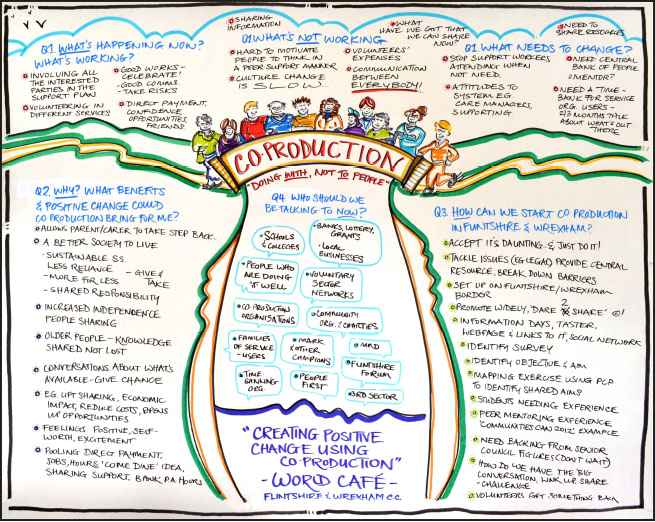 Q1. WHAT'S HAPPENING NOW?
WHAT'S WORKING?
INVOLVING ALL
THE INTERESTED
PARTIES IN THE
SUPPORT PLAN
VOLUNTEERING IN
DIFFERENT SERVICES
GOOD WORKS -
CELEBRATE!
- GOOD COMMS.
- TAKE RISKS
DIRECT PAYMENT,
CONFIDENCE
OPPORTUNITIES,
FRIENDS.
SHARING
INFORMATION
Q1 WHAT'S NOT WORKING
HARD TO MOTIVATE
PEOPLE TO THINK IN
A PEER SUPPORT MANNER
CULTURE CHANGE
IS SLOW..
VOLUNTEERS'
EXPENSES
COMMUNICATION
BETWEEN
EVERYBODY!
WHAT
HAVE WE GOT THAT
WE CAN SHARE
NOW?
NEED TO
SHARE RESOURCES
Q1. WHAT NEEDS TO CHANGE?
STOP SUPPORT WORKERS
ATTENDANCE WHEN
NOT NEEDED.
ATTITUDES TO
SYSTEM EG.
CARE MANAGERS,
SUPPORTING
NEED CENTRAL
BANK OF PEOPLE
MENTOR?
NEED A TIME-
BANK FOR SERVICE
ORG. USERS -
2/3 MONTHS TALK
ABOUT WHAT'S OUT
THERE
CO-PRODUCTION
"DOING WITH, NOT TO PEOPLE"
Q2. WHY? WHAT BENEFITS
& POSITIVE CHANGE COULD
CO PRODUCTION BRING FOR ME?
ALLOWS PARENT/CARER TO TAKE STEP BACK.
A BETTER SOCIETY TO LIVE
- SUSTAINABLE S.S.
LESS RELIANCE - GIVE &
- MORE FOR LESS TAKE
- SHARED RESPONSIBILITY
INCREASED INDEPENDENCE
PEOPLE SHARING
OLDER PEOPLE - KNOWLEDGE
SHARED NOT LOST
CONVERSATIONS ABOUT WHAT'S
AVAILABLE - GIVE CHANGE
EG. UP SHARING, ECONOMIC
IMPACT, REDUCE COSTS, OPENS
UP OPPORTUNITIES
FEELINGS: POSITIVE, SELF-
WORTH, EXCITEMENT
POOLING DIRECT PAYMENT,
JOBS, HOURS 'COME DINE' IDEA,
SHARING SUPPORT, BANK P.A. HOURS
Q4. WHO SHOULD WE
BE TALKING TO NOW?
SCHOOLS
& COLLEGES
BANKS, LOTTERY,
GRANTS
LOCAL
BUSINESSES
PEOPLE WHO
ARE DOING
IT WELL
VOLUNTARY
SECTOR
NETWORKS
CO PRODUCTION
ORGANISATIONS
COMMUNITY
ORG. & CHARITIES
FAMILIES
OF SERVICE
- USERS
MARK
& OTHER
CHAMPIONS
FLINTSHIRE
FORUM
TIME
BANKING-
ORG
PEOPLE
FIRST
3RD SECTOR
"CREATING POSITIVE
CHANGE USING
CO-PRODUCTION"
- WORLD CAFÉ -
FLINTSHIRE & WREXHAM C.C.
Q3 HOW CAN WE START CO PRODUCTION
IN FLINTSHIRE & WREXHAM?
ACCEPT IT'S DAUNTING & JUST DO IT!
TACKLE ISSUES (EG LEGAL) PROVIDE CENTRAL
RESOURCE, BREAK DOWN BARRIERS
SET UP ON FLINTSHIRE/WREXHAM
BORDER
PROMOTE WIDELY, 'DARE 2 SHARE'
INFORMATION DAYS, TASTER,
WEBPAGE & LINKS TO IT, SOCIAL NETWORK
IDENTIFY SURVEY
IDENTIFY OBJECTIVE & AIM
MAPPING EXERCISE USING PCP
TO IDENTIFY SHARED AIMS
STUDENTS NEEDING EXPERIENCE
PEER MENTORING EXPERIENCE
'COMMUNITIES CAN 2012' EXAMPLE
NEED BACKING FROM SENIOR
COUNCIL FIGURES (DON'T WAIT)
HOW DO WE HAVE THE BIG
CONVERSATION, LINK UP, SHARE
- CHALLENGE
VOLUNTEERS GET SOMETHING BACK